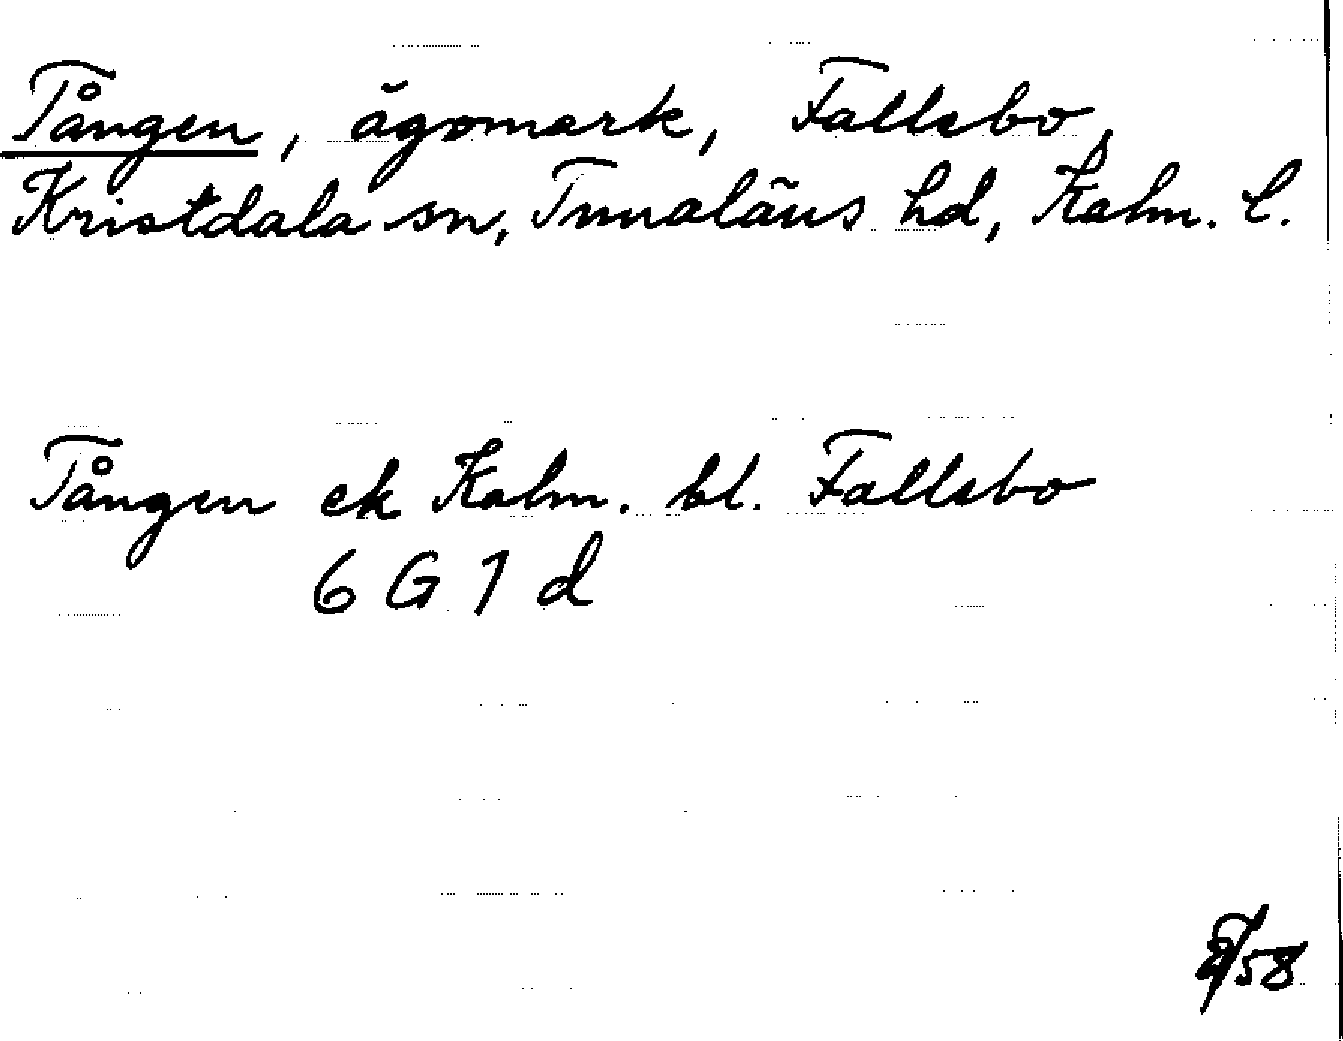 Tången, ägomark, Fallebo,
Kristdala sn, Tunaläns hd, Kalm. l.
Tången ek Kalm. bl. Fallebo
6 G 1 d
/58